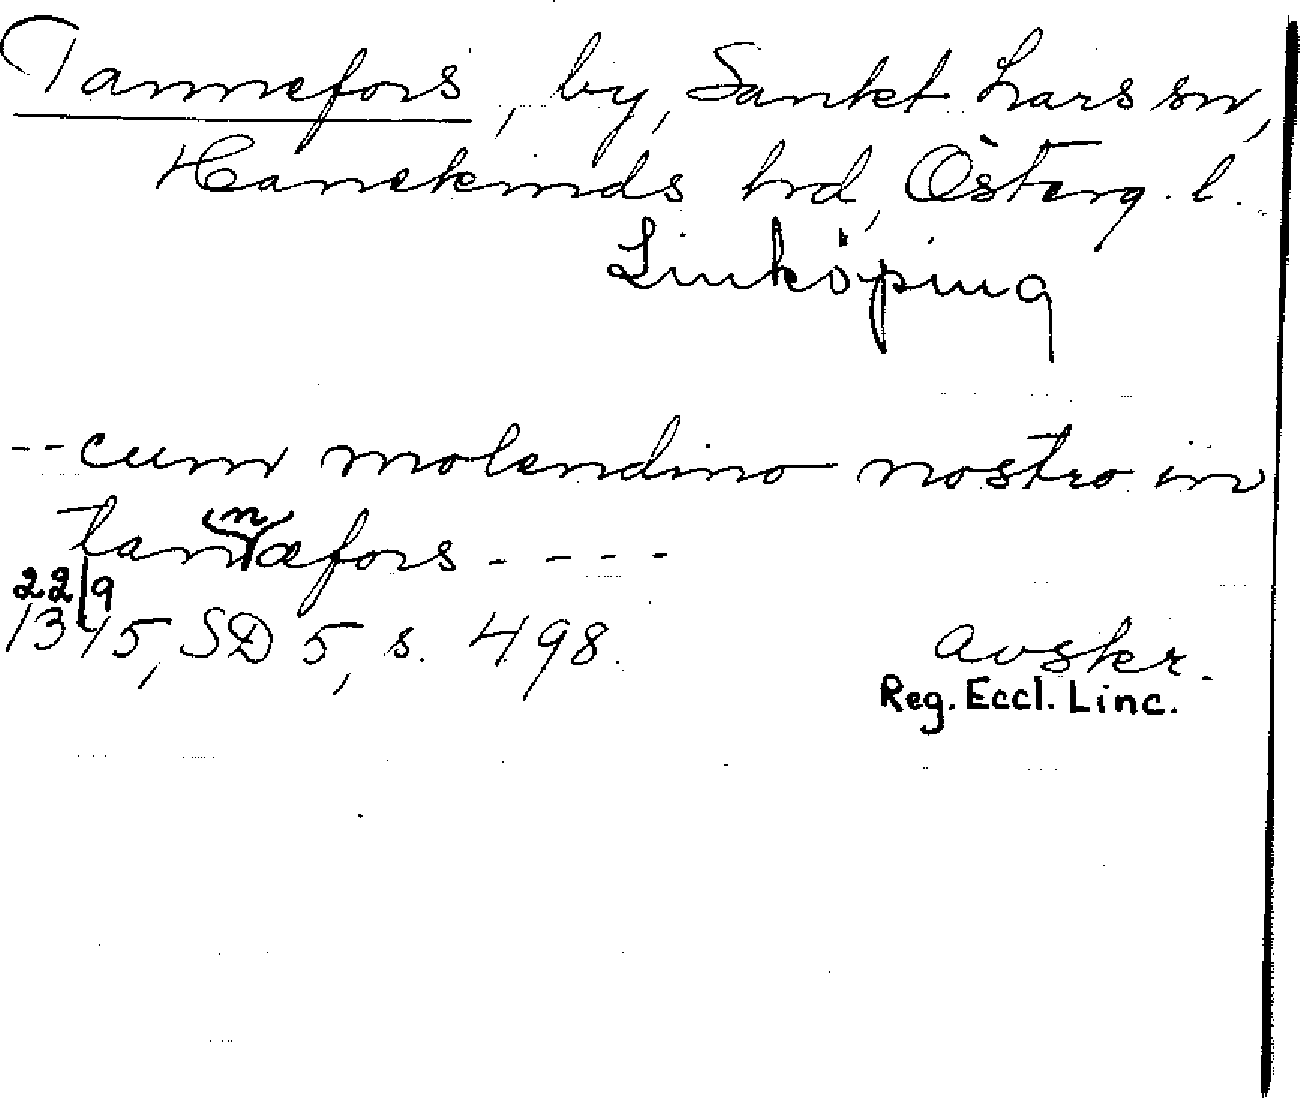 Tannefors, by, Sankt Lars sn,
Hanekinds hd, Österg. l.
Linköping
-- cum molendino nostro in
tan(n)æfors - - - -
22/9
1345, SD 5, s. 498. avskr.
Reg. Eccl. Linc.